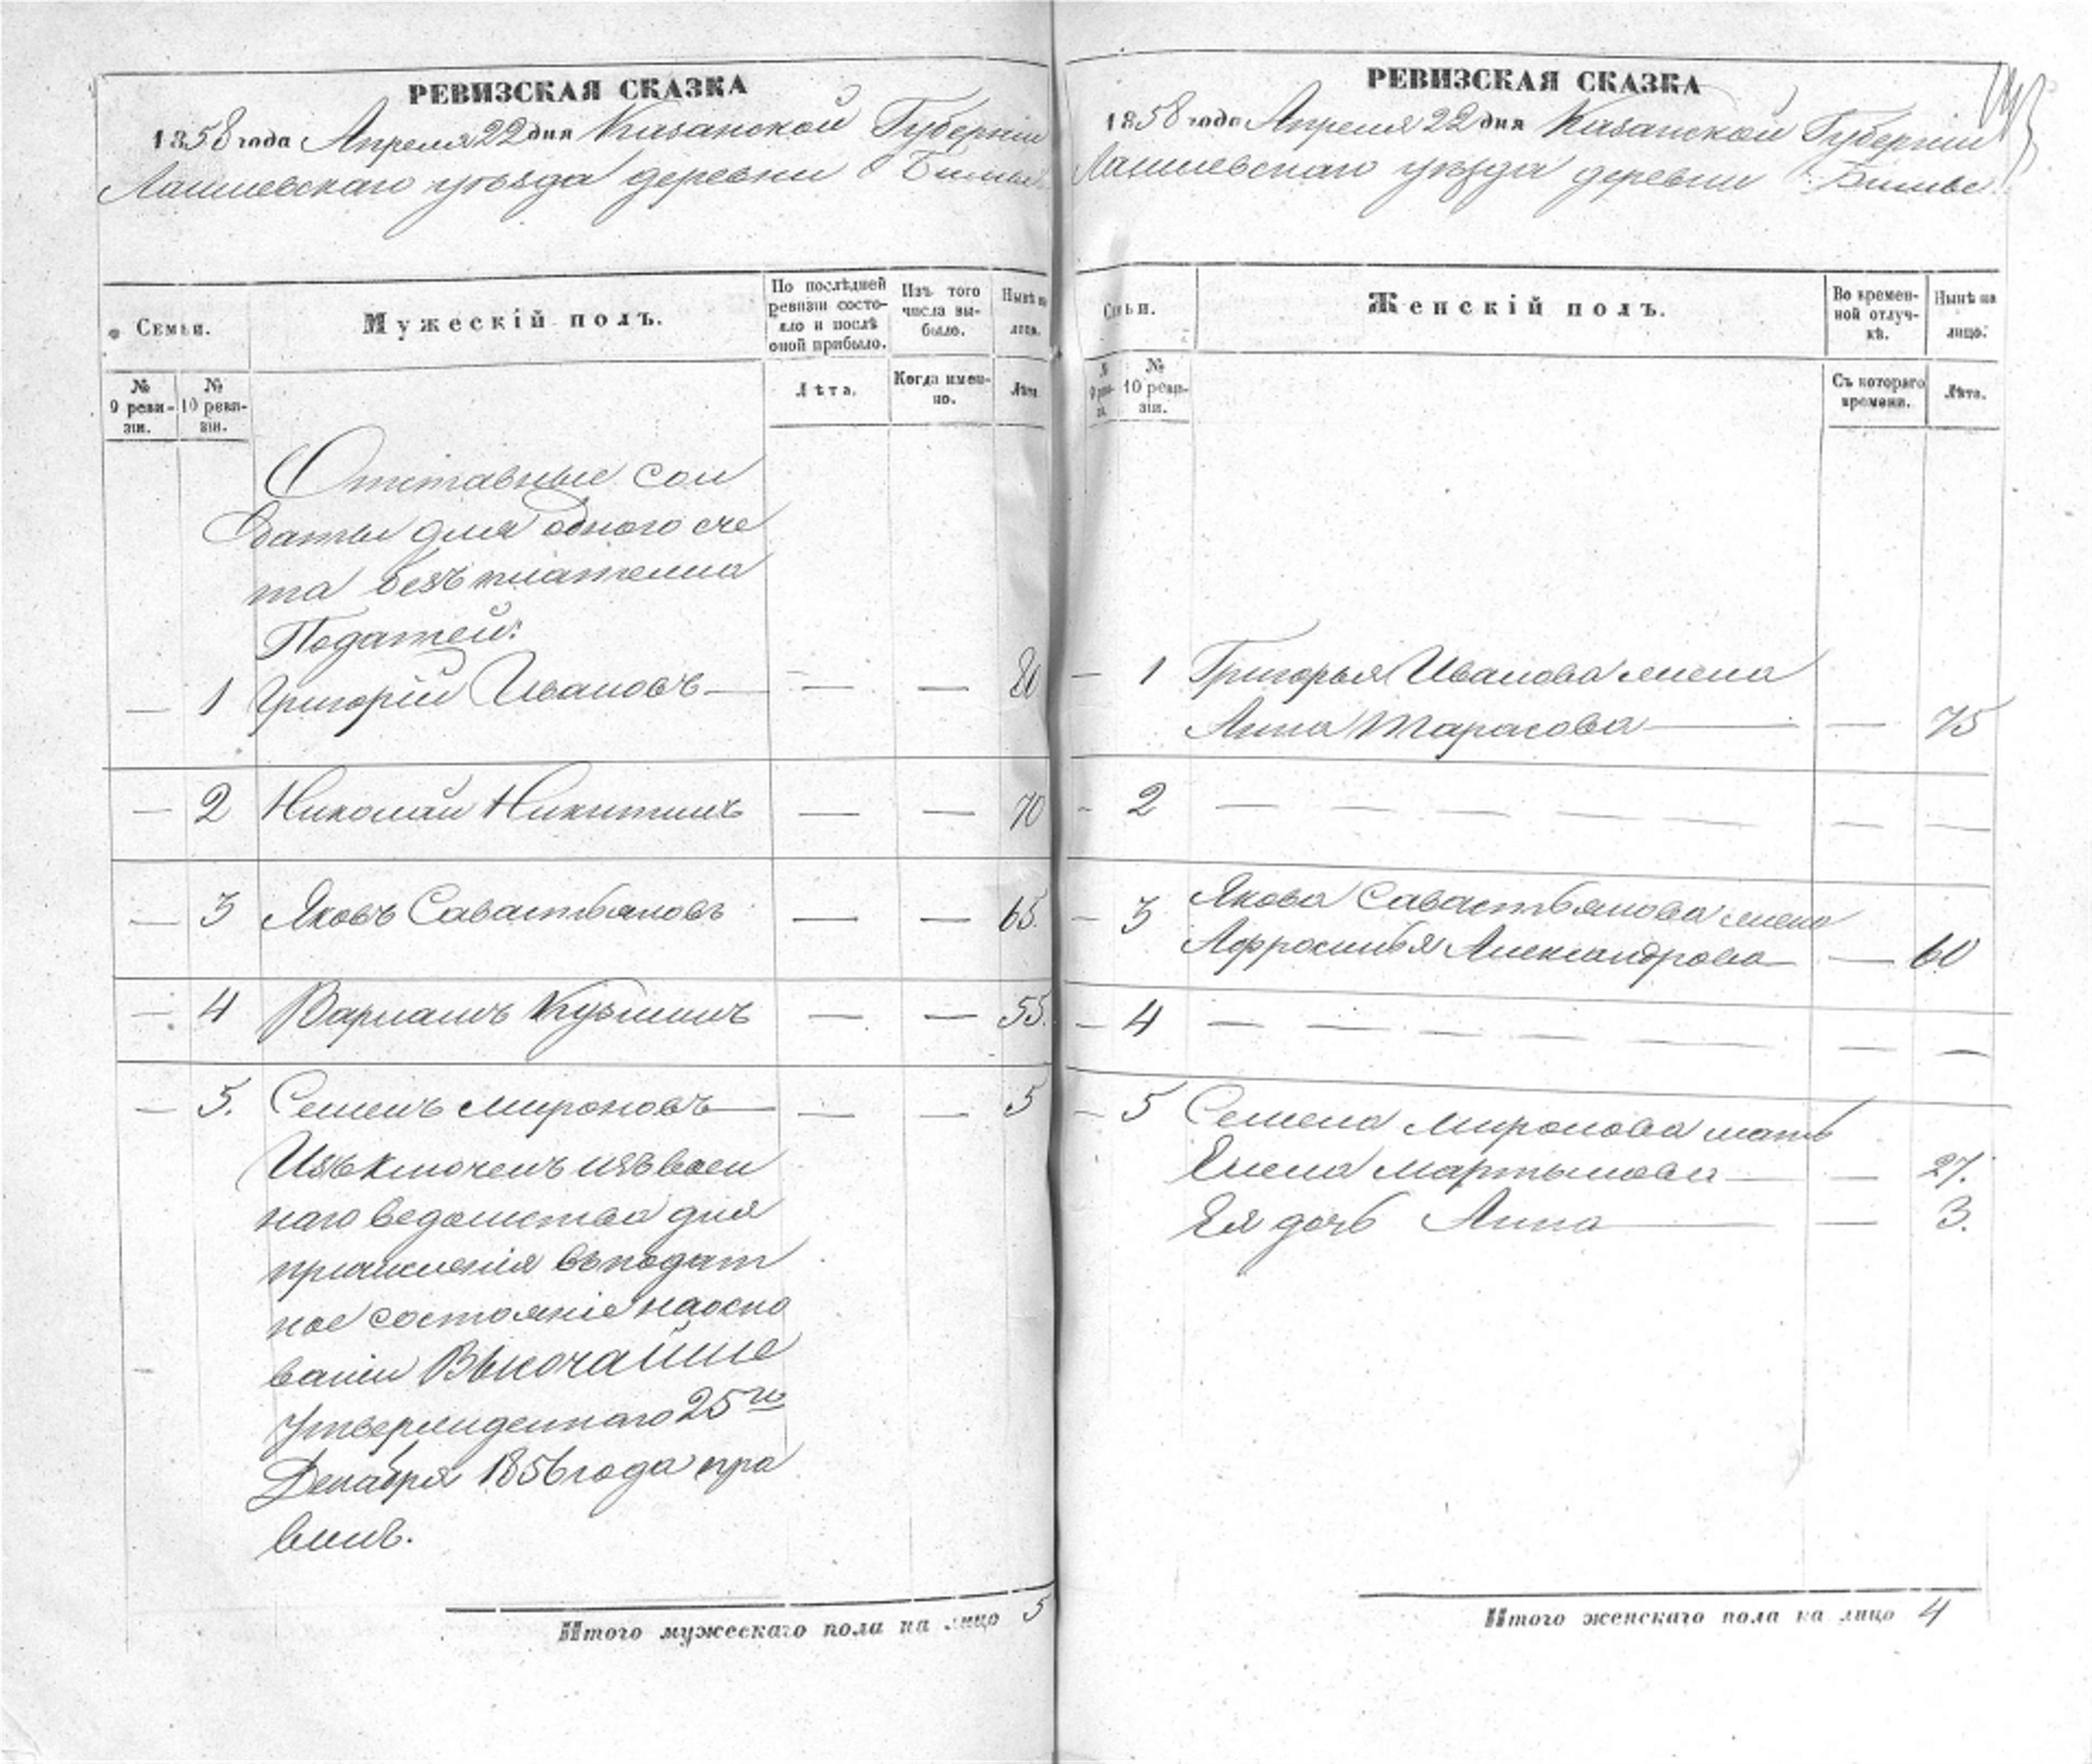 РЕВИЗСКАЯ СКАЗКА
1858 года Апреля 22 дня Казанской Губерніи
Лаишевскаго уѣзда деревни
Семьи.
Мужескій полъ.
По послѣдней ревизіи состо-
яло и послѣ оной прибыло.
Изъ того числа вы-
было.
Нынѣ на лицо.
№ 9 реви-
зіи.
№ 10 реви-
зіи.
Лѣта.
Когда имен-
но.
Лѣта
Отставные сол
даты для одного сче
та безъ платежа
Податей:
— 1 Григорій Ивановъ — — — 80
— 2 Николай Никитинъ — — 70
— 3 Яковъ Савастьяновъ — — 65.
— 4 Варламъ Кузьминъ — — 55.
— 5. Семенъ Мироновъ — — — 5
Изъключенъ изъ воен
наго ведомства для
причисленія въ подат
ное состояніе на осно
ваніи Высочайше
Утвержденнаго 25го
Декабря 1856 года пра
вилъ.
Итого мужескаго пола на лицо 5
РЕВИЗСКАЯ СКАЗКА
1858 года Апреля 22 дня Казанской Губерніи
Лаишевскаго уѣзда деревни
Семьи.
Женскій полъ.
Во времен-
ной отлуч-
кѣ.
Нынѣ на лицо.
№ 9 реви-
зіи.
№ 10 реви-
зіи.
Съ котораго времени.
Лѣта.
— 1 Григорья Иванова жена
Анна Тарасова — — 75
- 2 — — — — — — — —
- 3 Якова Савастьянова жена
Афросинья Александрова — — 60
- 4 — — — — — — — —
- 5 Семена Миронова мать
Елена Мартынова — — 27.
Ея дочь Анна — — 3.
Итого женскаго пола на лицо 4